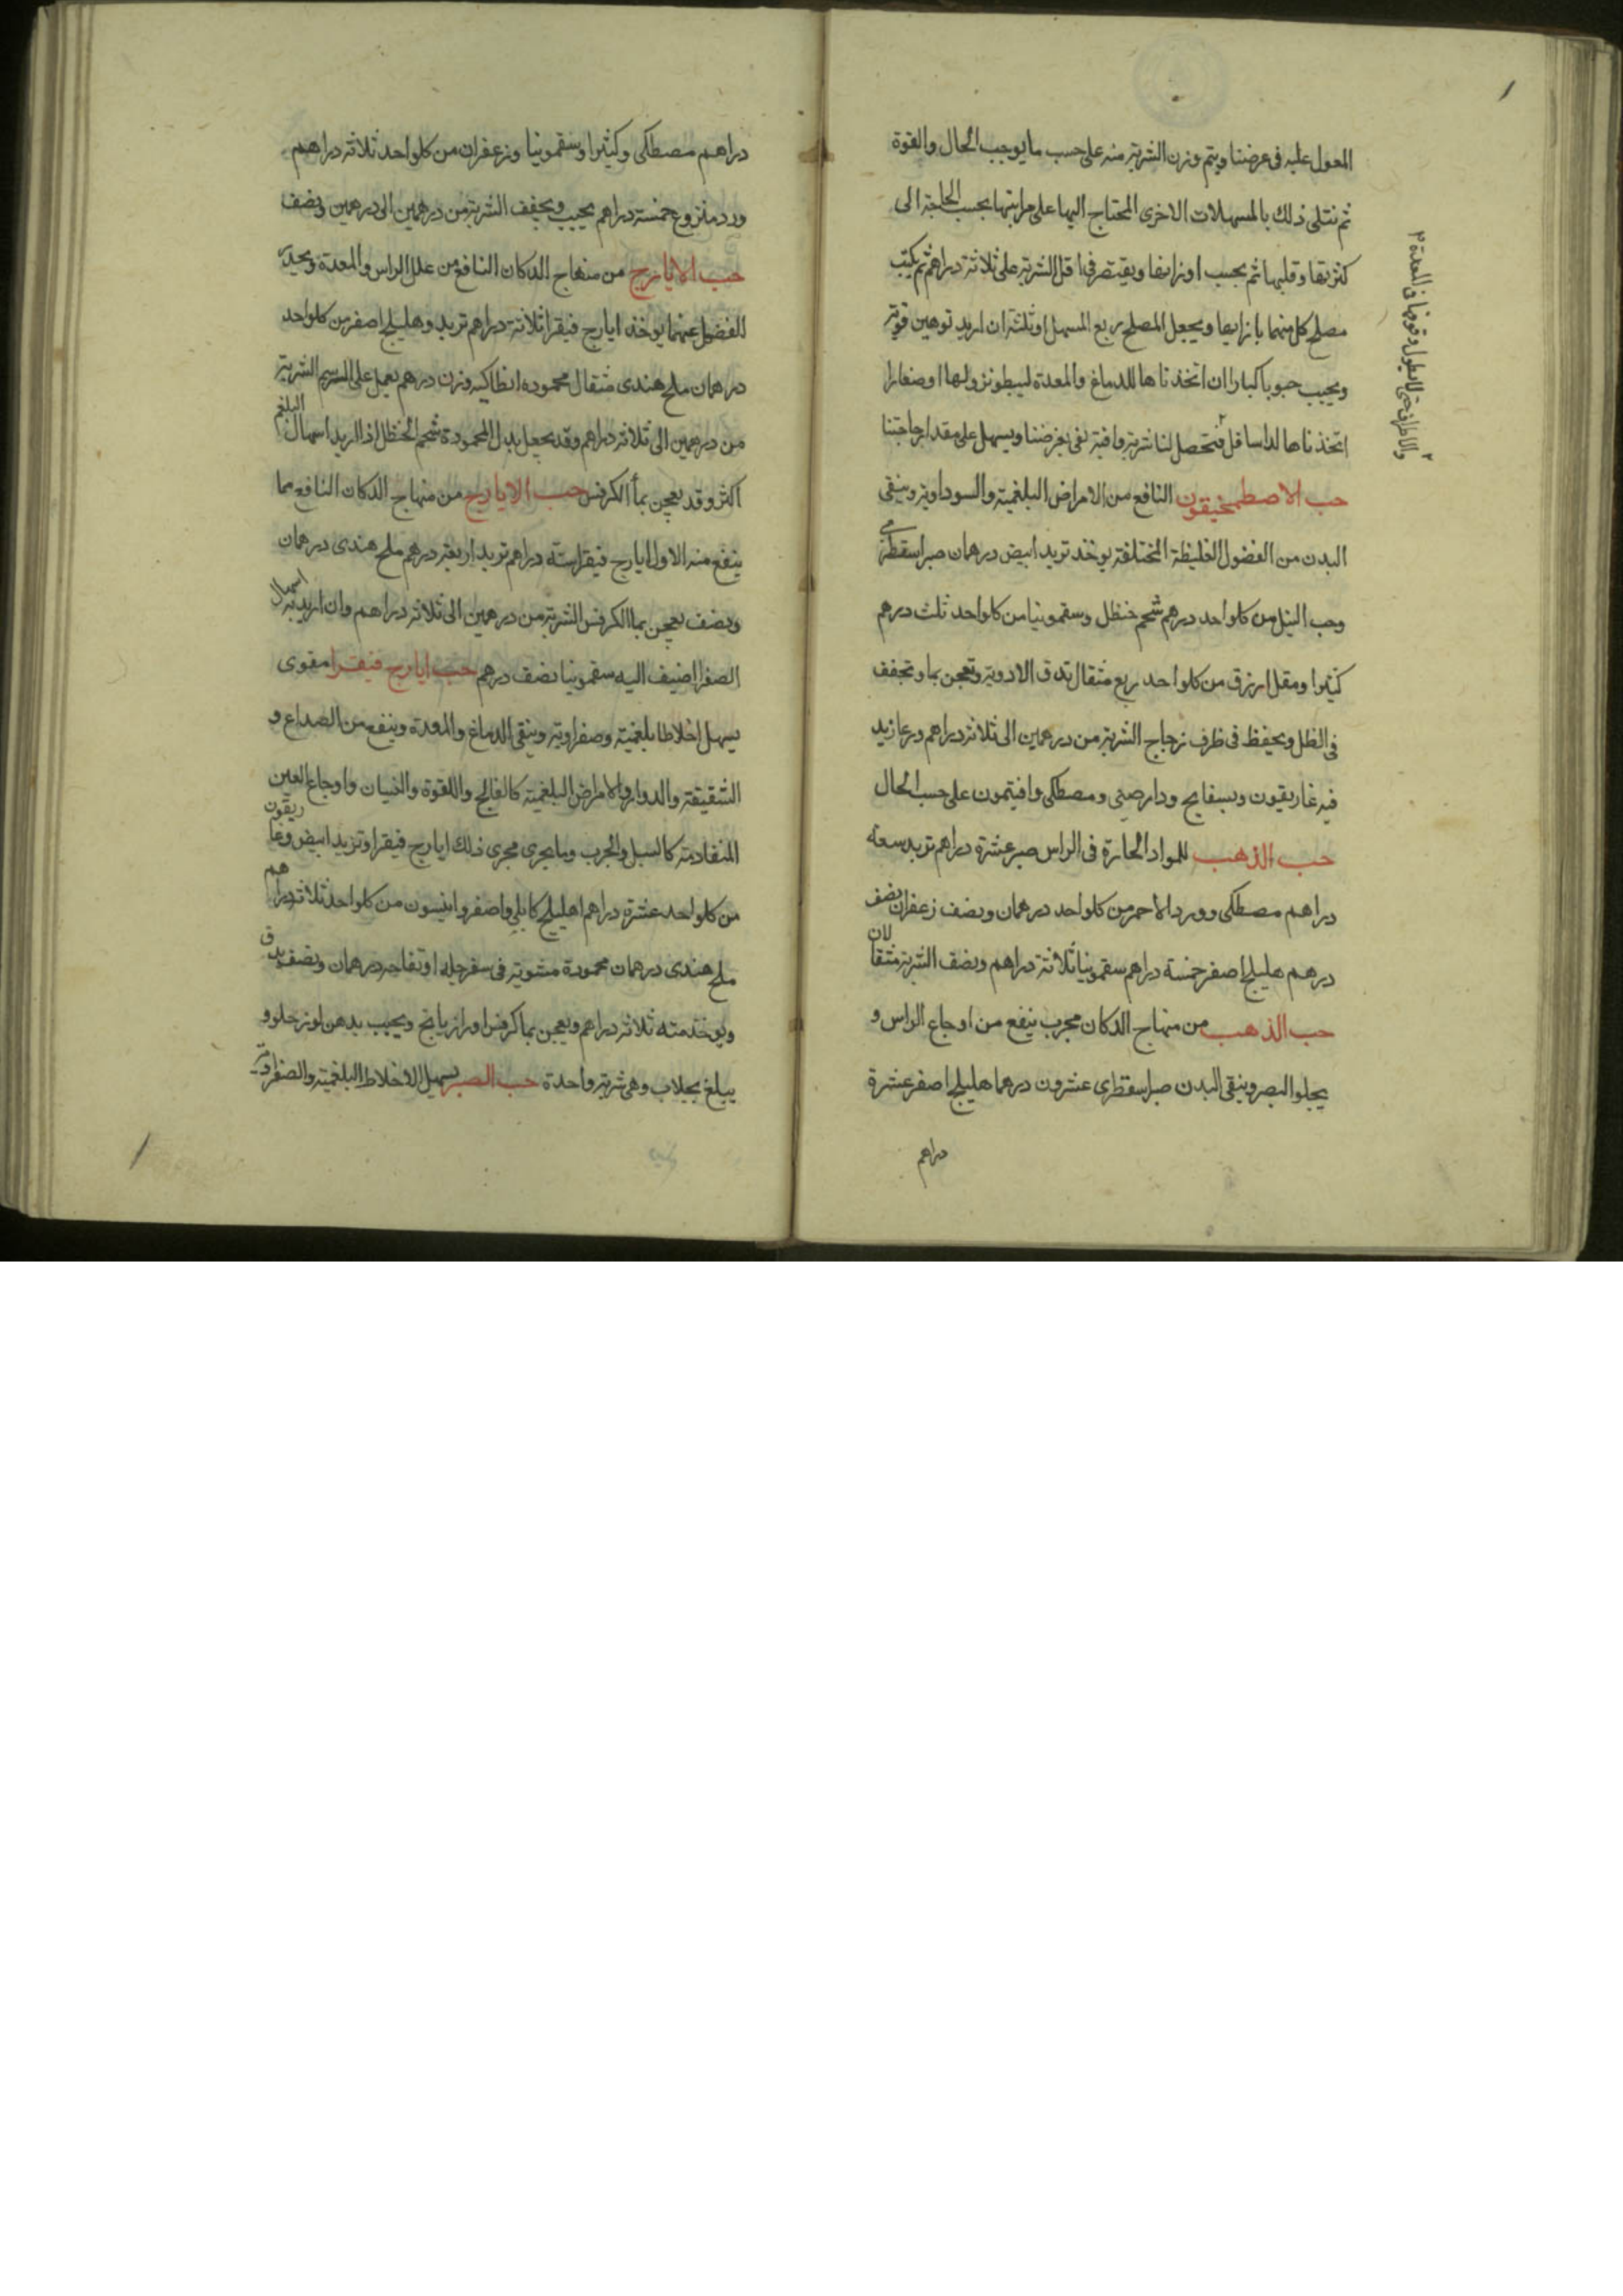 المعول عليه فى غرضنا ويتم وزن الشربة منه على حسب ما يوجب الحال والقوة
ثم نتلى ذلك بالمسهلات الاخرى المحتاج اليها على مراتبها بحسب الحاجة الى
كثرتها وقلتها ثم بحسب اوزانها ويقتصر فى اقل الشربة على ثلاثة دراهم ثم يكتب
مصلح كل منهما بازايها ويجعل المصلح ربع المسهل او ثلثه ان اريد توهين قوته
ويحبب حبوبا كبارا ان اتخذناها للدماغ والمعدة ليبطو نزولها او صغارا
اتخذناها لداسافل فتحصل لنا شربة وافية تفى بغرضنا ويسهل على مقدار حاجتنا
حب الاصطمخيقون النافع من الامراض البلغمية والسوداوية وينقى
البدن من الفضول الغليظة المختلفة يوخذ تربد ابيض درهمان صبر اسقطرى
وحب النيل من كلواحد درهم شحم حنظل وسقمونيا من كلواحد ثلث درهم
كثيرا ومقل ازرق من كلواحد ربع مثقال تدق الادوية وتعجن بما وتجفف
فى الظل ويحفظ فى ظرف زجاج الشربة من درهمين الى ثلاثة دراهم وربما زيد
فيه غاريقون وبسفايج ودارصينى ومصطكى وافيتمون على حسب الحال
حب الذهب للمواد الحارة فى الراس صبر عشرة دراهم تربد سبعة
دراهم مصطكى وورد الاحمر من كلواحد درهمان ونصف زعفران نصف
درهم هليلج اصفر خمسة دراهم سقمونيا ثلاثة دراهم ونصف الشربة مثقالان
حب الذهب من منهاج الدكان مجرب ينفع من اوجاع الراس و
يجلو البصر وينقى البدن صبر اسقطرى عشرون درهما هليلج اصفر عشرة
دراهم
دراهم مصطكى وكثيرا وسقمونيا وزعفران من كلواحد ثلاثة دراهم
ورد منزوع خمسة دراهم يحبب ويجفف الشربة من درهمين الى درهمين ونصف
حب الايارج من منهاج الدكان النافع من علل الراس والمعدة ويحدر
الفضول عنهما يوخذ ايارج فيقرا ثلاثة دراهم تربد وهليلج اصفر من كلواحد
درهمان ملح هندى مثقال محموده انطاكيه وزن درهم يعمل على الرسم الشربة
من درهمين الى ثلاثة دراهم وقد يجعل بدل المحمودة شحم الحنظل اذا اريد اسهال البلغم
اكثر وقد يعجن بماء الكرفس حب الايارج من منهاج الدكان النافع مما
ينفع منه الاول ايارج فيقرا ستة دراهم تربد اربعة درهم ملح هندى درهمان
ونصف يعجن بما الكرفس الشربة من درهمين الى ثلاثة دراهم وان اريد به اسهال
الصفرا اضيف اليه سقمونيا نصف درهم حب ايارج فيقرا مقوى
يسهل اخلاطا بلغمية وصفراوية وينقى الدماغ والمعدة وينفع من الصداع و
الشقيقة والدوار والامراض البلغمية كالفالج واللقوة والنسيان واوجاع العين
المتقادمة كالسبل والجرب وما يجرى مجرى ذلك ايارج فيقرا وتربد ابيض وغاريقون
من كلواحد عشرة دراهم اهليلج كابلى واصفر وانيسون من كلواحد ثلاثة دراهم
ملح هندى درهمان محمودة مشوية فى سفرجله او تفاحه درهمان ونصف يدق
ويوخذ منه ثلاثة دراهم ويعجن بما كرفس او رازيانج ويحبب بدهن لوز حلو و
يبلع بجلاب وهى شربة واحدة حب الصبر يسهل الاخلاط البلغمية والصفراوية